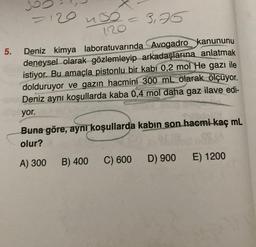 = 120
= 3,75
120
5. Deniz kimya laboratuvarında Avogadro kanununu
deneysel olarak gözlemleyip arkadaşlarına anlatmak
istiyor. Bu amaçla pistonlu bir kabı 0,2 mol He gazı ile
dolduruyor ve gazın hacmini 300 mL olarak ölçüyor.
Deniz aynı koşullarda kaba 0,4 mol daha gaz ilave edi-
yor.
Buna göre, aynı koşullarda kabın son hacmi kaç mL
olur?
A) 300 B) 400 C) 600 D) 900 E) 1200